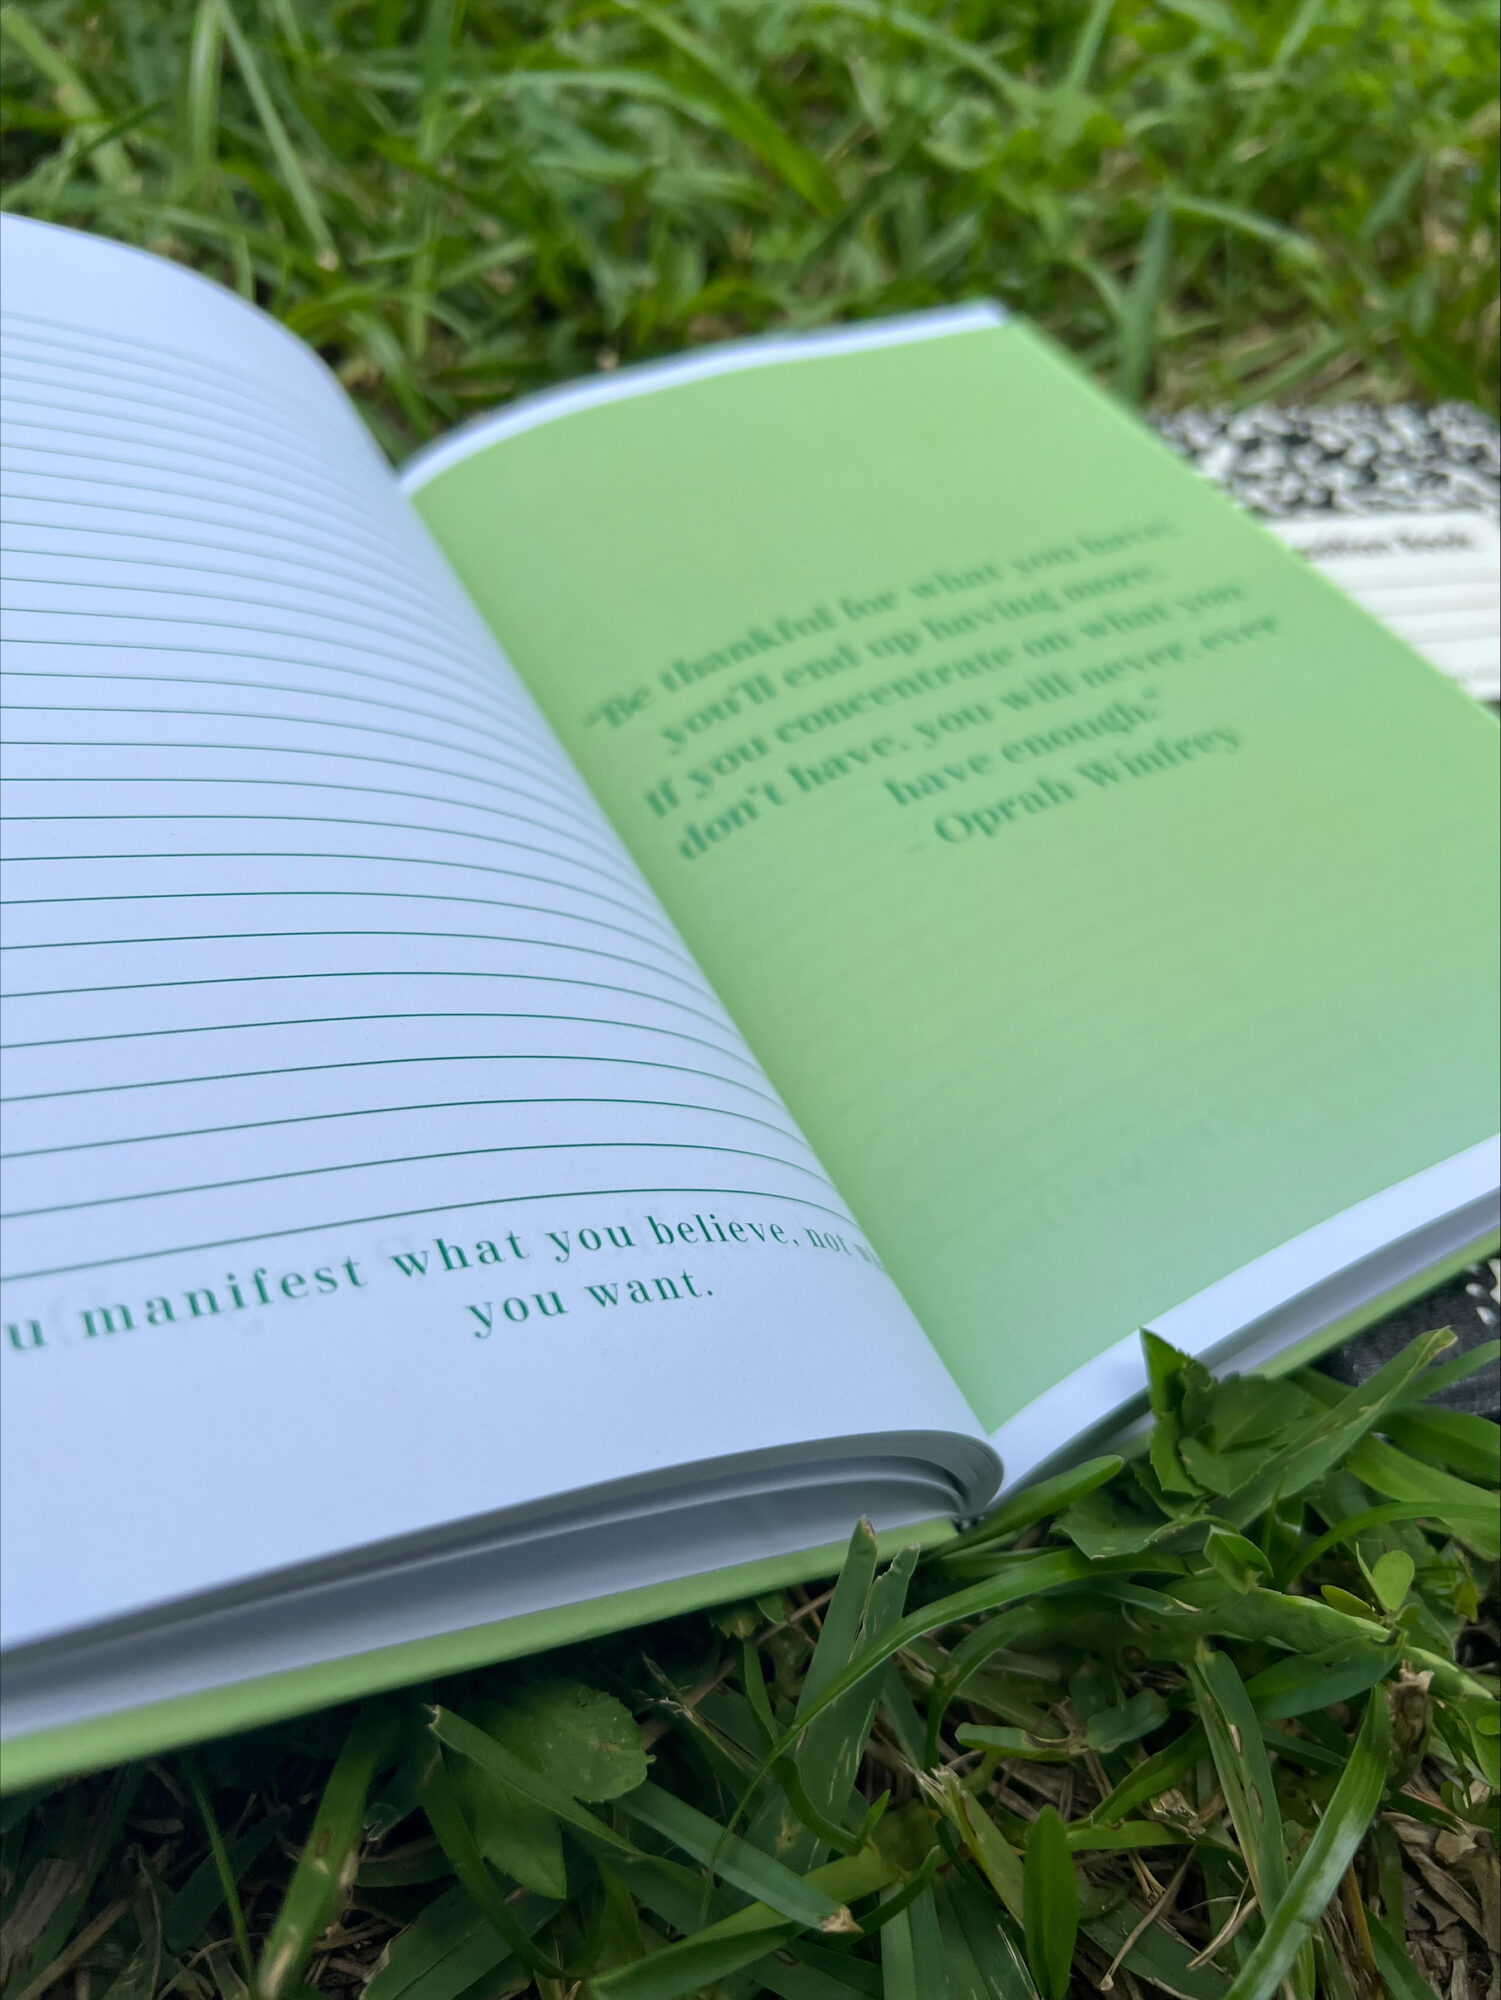 u manifest what you believe, not
you want.
"Be thankful for what you have;
you'll end up having more.
If you concentrate on what you
don't have, you will never, ever
have enough."
- Oprah Winfrey
Book